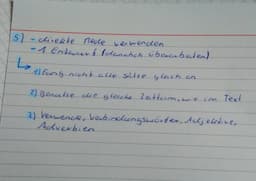 5) - direkte Rede verwenden
- 1. Entwurf (danach überarbeiten)
1) Fang nicht alle Sätze gleich an
2) Benutze die gleiche Zeitform, wie im Text
3) Verwende Verbindungswörter, Adjektive,
Adverbien